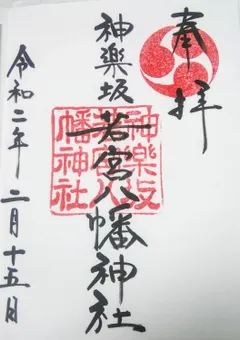 奉拝
神楽坂
若宮八幡神社
令和二年二月十五日
神樂坂
若宮八
幡神社